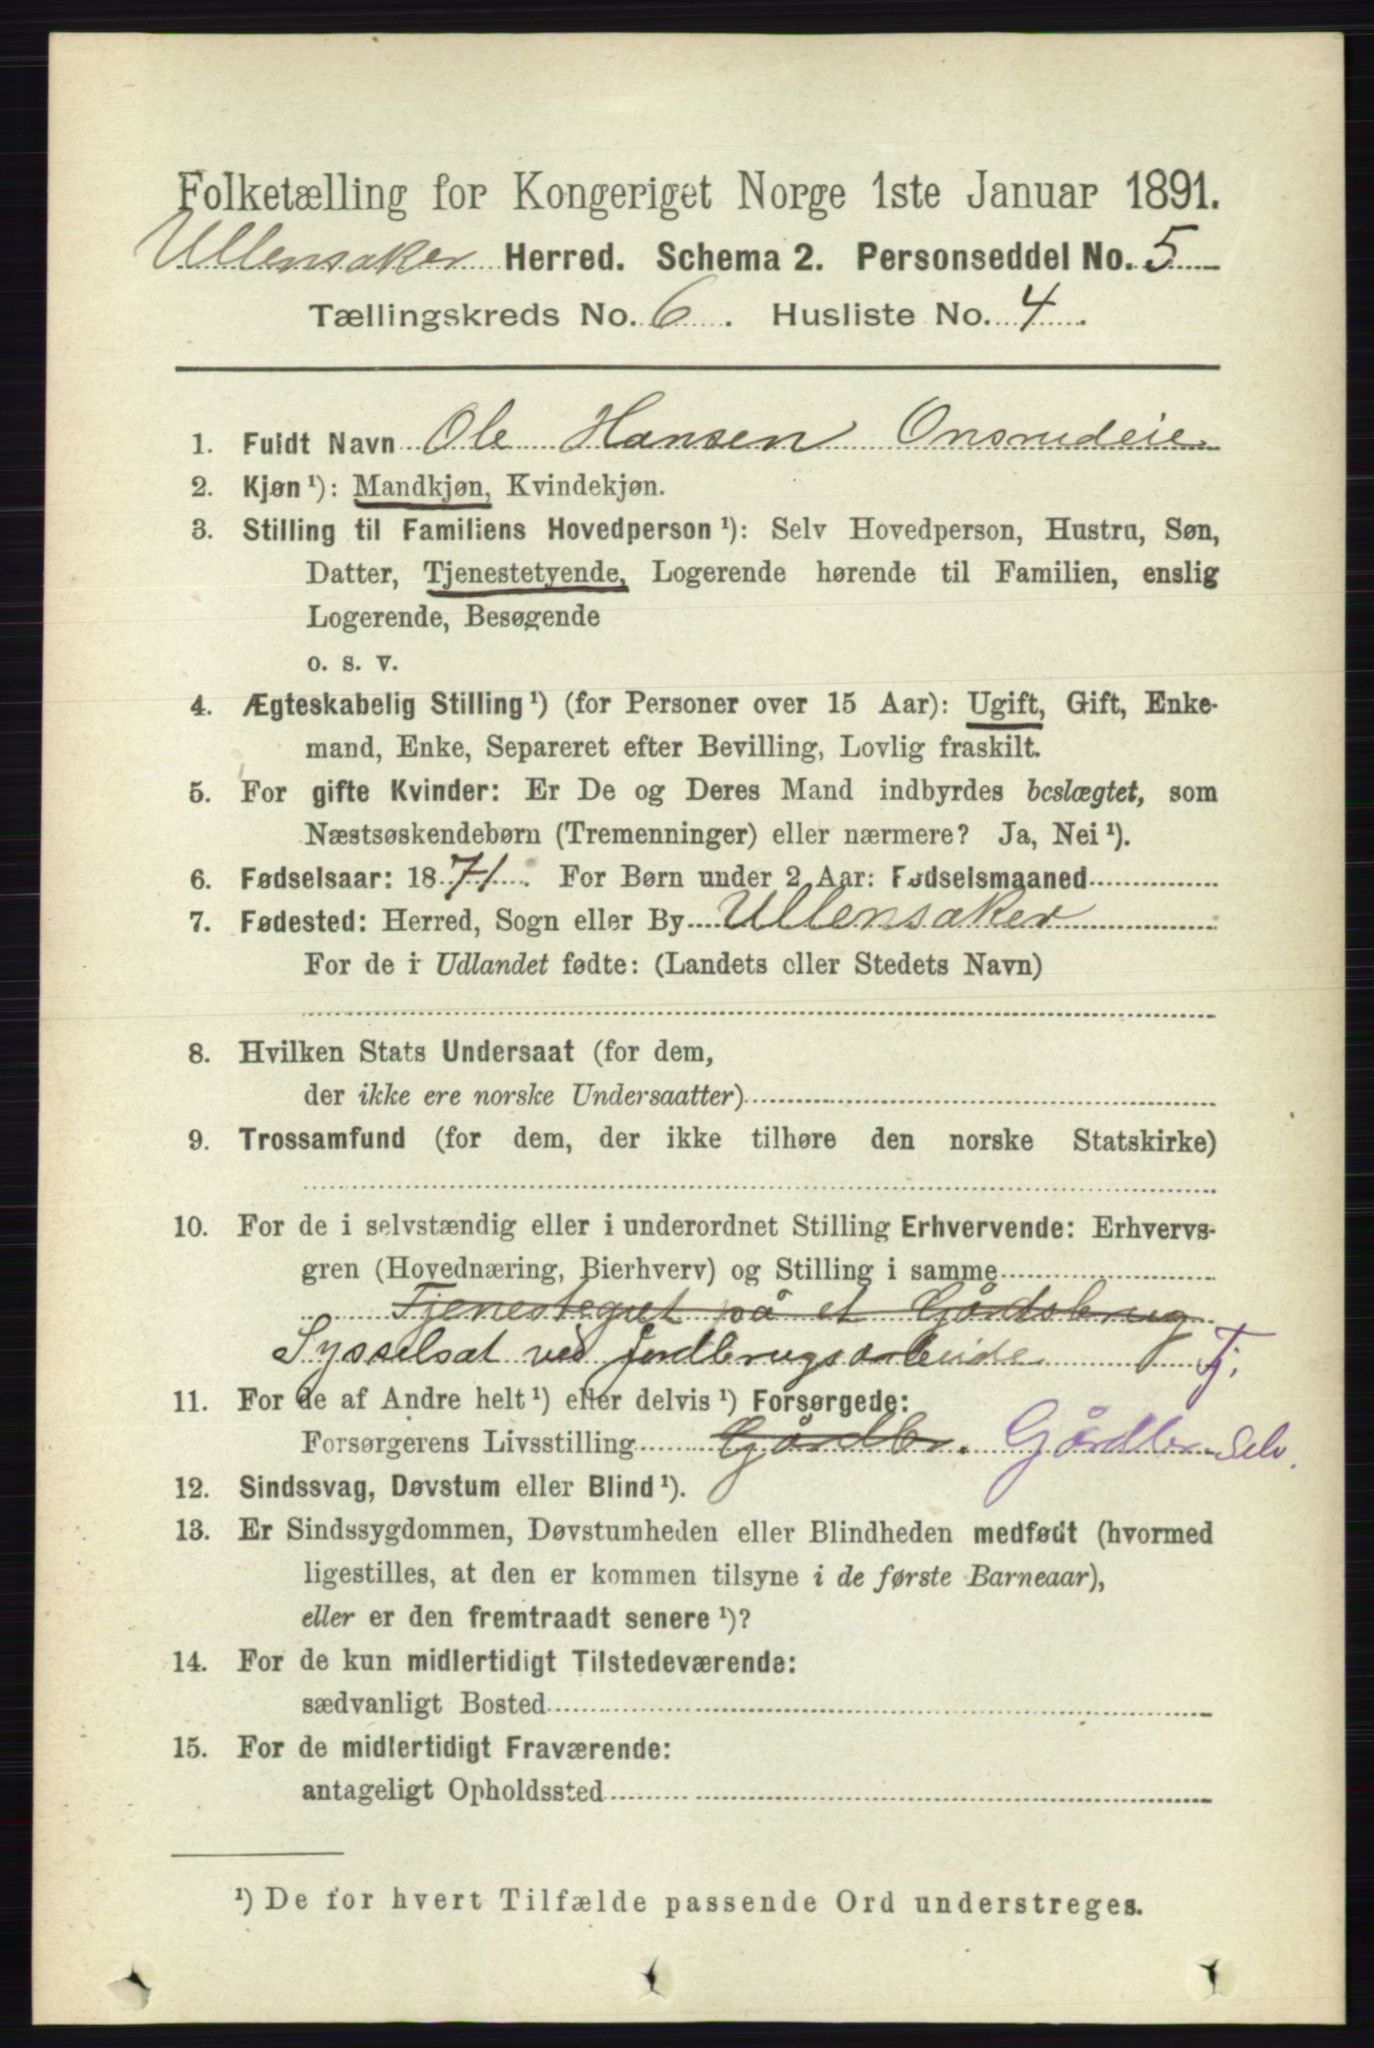 Folketælling for Kongeriget Norge 1ste Januar 1891.
Ullensaker Herred. Schema 2. Personseddel No. 5
Tællingskreds No. 6. Husliste No. 4.
1. Fuldt Navn Ole Hansen Onsrudeie
2. Kjøn ¹): Mandkjøn, Kvindekjøn.
3. Stilling til Familiens Hovedperson ¹): Selv Hovedperson, Hustru, Søn,
Datter, Tjenestetyende, Logerende hørende til Familien, enslig
Logerende, Besøgende
o. s. v.
4. Ægteskabelig Stilling ¹) (for Personer over 15 Aar): Ugift, Gift, Enke-
mand, Enke, Separeret efter Bevilling, Lovlig fraskilt.
5. For gifte Kvinder: Er De og Deres Mand indbyrdes beslægtet, som
Næstsøskendebørn (Tremenninger) eller nærmere? Ja, Nei ¹).
6. Fødselsaar: 1871. For Børn under 2 Aar: Fødselsmaaned
7. Fødested: Herred, Sogn eller By Ullensaker
For de i Udlandet fødte: (Landets eller Stedets Navn)
8. Hvilken Stats Undersaat (for dem,
der ikke ere norske Undersaatter)
9. Trossamfund (for dem, der ikke tilhøre den norske Statskirke)
10. For de i selvstændig eller i underordnet Stilling Erhvervende: Erhvervs-
gren (Hovednæring, Bierhverv) og Stilling i samme
Tjenestegut på et Gårdsbrug
Sysselsat ved jordbrugsarbeide Tj.
11. For de af Andre helt ¹) eller delvis ¹) Forsørgede:
Forsørgerens Livsstilling Gårdbr. Gårdbr. Selv.
12. Sindssvag, Døvstum eller Blind ¹).
13. Er Sindssygdommen, Døvstumheden eller Blindheden medfødt (hvormed
ligestilles, at den er kommen tilsyne i de første Barneaar),
eller er den fremtraadt senere ¹)?
14. For de kun midlertidigt Tilstedeværende:
sædvanligt Bosted
15. For de midlertidigt Fraværende:
antageligt Opholdssted
¹) De for hvert Tilfælde passende Ord understreges.